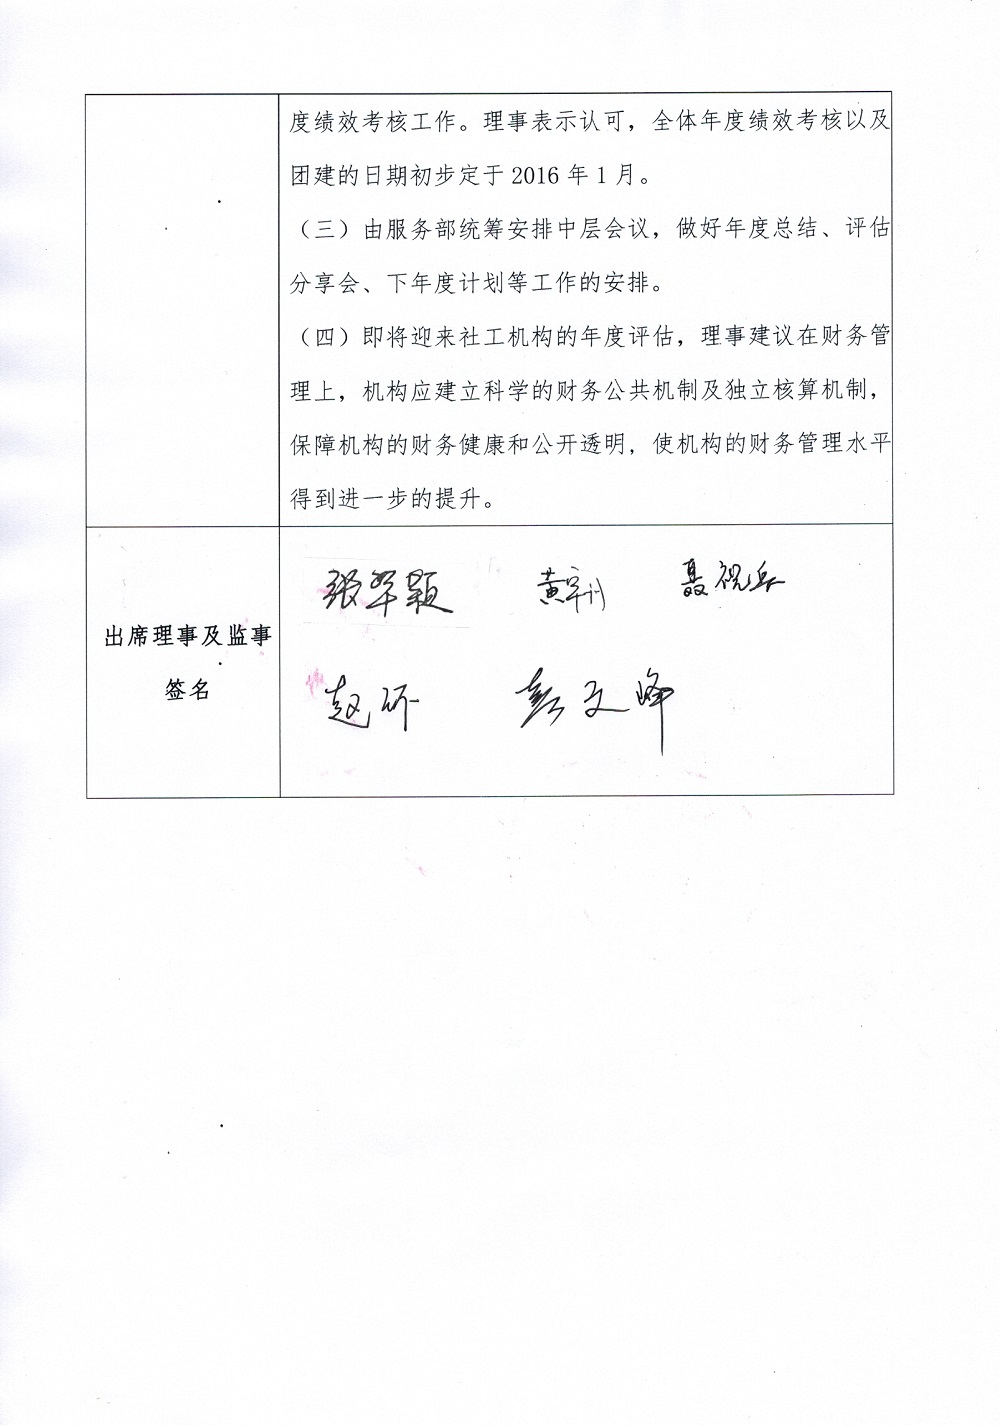 度绩效考核工作。理事表示认可，全体年度绩效考核以及
团建的日期初步定于 2016 年 1 月。
（三）由服务部统筹安排中层会议，做好年度总结、评估
分享会、下年度计划等工作的安排。
（四）即将迎来社工机构的年度评估，理事建议在财务管
理上，机构应建立科学的财务公共机制及独立核算机制，
保障机构的财务健康和公开透明，使机构的财务管理水平
得到进一步的提升。
出席理事及监事
签名
赵研
彭文峰